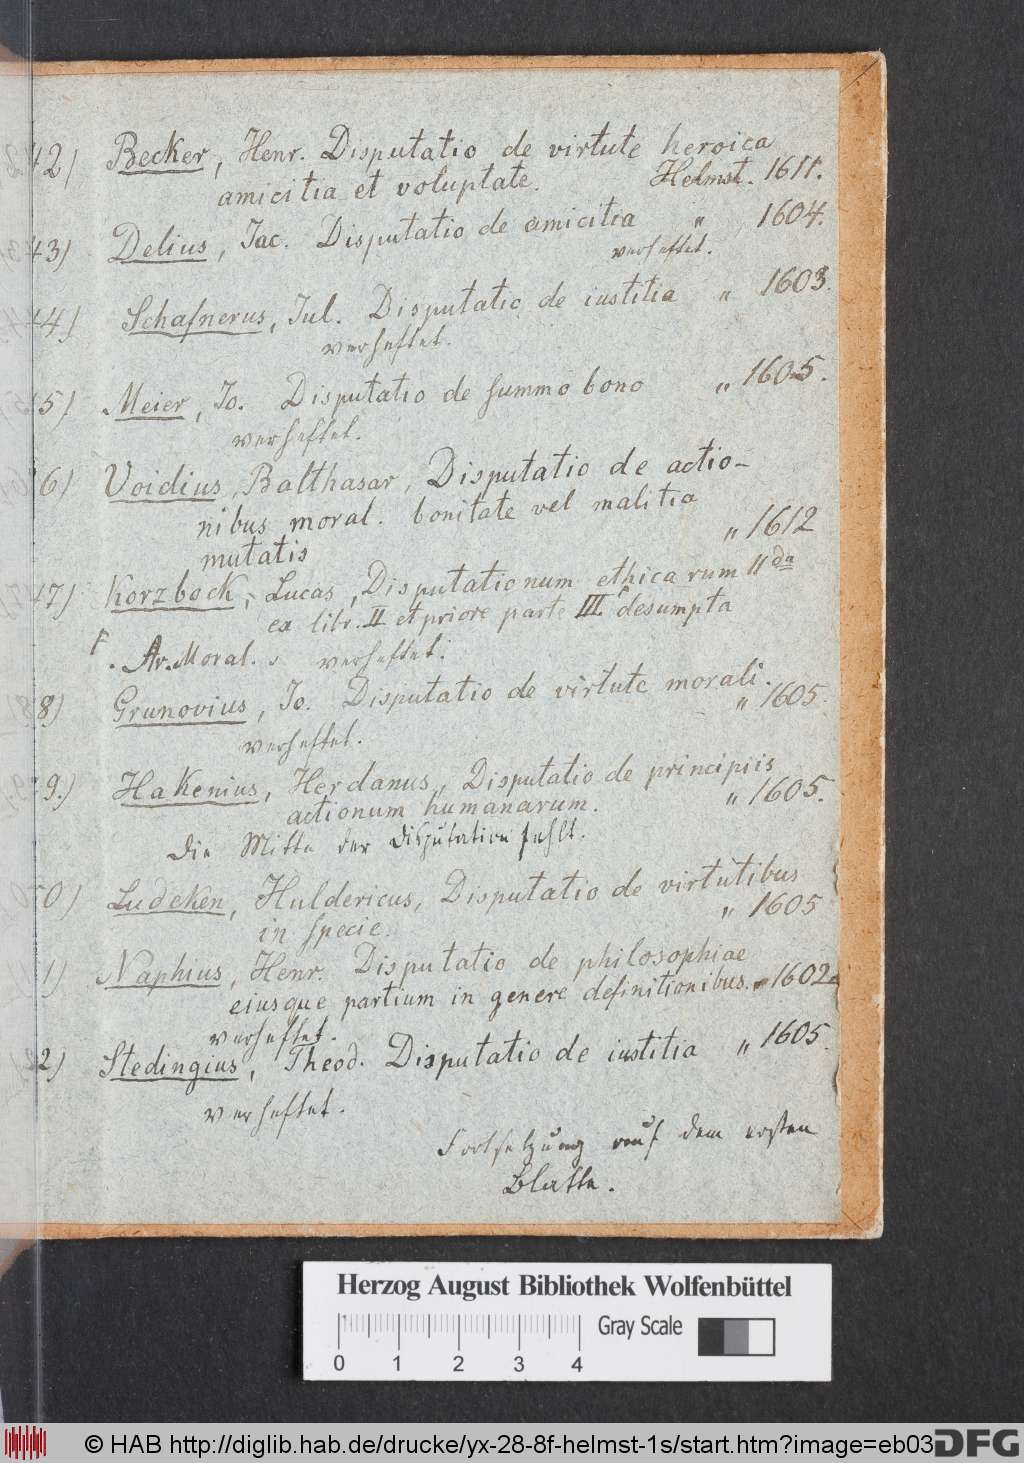 42) Becker, Henr. Disputatio de virtute heroica
amicitia et voluptate. Helmst. 1611.
43) Delius, Iac. Disputatio de amicitia " 1604.
verheftet.
44) Schafnerus, Iul. Disputatio de iustitia " 1603.
verheftet.
5) Meier, Io. Disputatio de summo bono " 1605.
verheftet.
6) Voidius, Balthasar, Disputatio de actio-
nibus moral. bonitate vel malitia
mutatis " 1612
47) Korzbock, Lucas, Disputationum ethicarum IIda
ex libr. II et priore parte III. desumpta
Ar. Moral. verheftet.
8) Grunovius, Io. Disputatio de virtute morali.
" 1605.
verheftet.
9.) Hakenius, Herdanus, Disputatio de principiis
actionum humanarum. " 1605.
Die Mitte der Disputation fehlt.
0) Ludeken, Huldericus, Disputatio de virtutibus
in specie. " 1605
1) Naphius, Henr. Disputatio de philosophiae
eiusque partium in genere definitionibus. " 1602
verheftet.
2) Stedingius, Theod. Disputatio de iustitia " 1605.
verheftet.
Fortsetzung auf dem ersten
Blatte.
Herzog August Bibliothek Wolfenbüttel
Gray Scale
0 1 2 3 4
© HAB http://diglib.hab.de/drucke/yx-28-8f-helmst-1s/start.htm?image=eb03
DFG